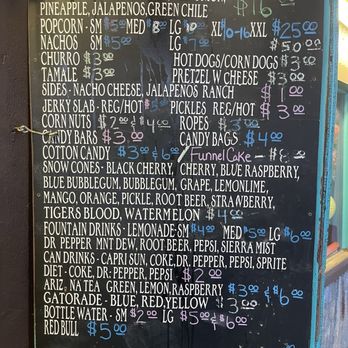 PINEAPPLE, JALAPENOS, GREEN CHILE $16⁰⁰
POPCORN - SM $5⁰⁰ MED $8 LG $10⁰⁰ XL $10-16 XXL $25⁰⁰
NACHOS SM $5⁰⁰ LG $7⁰⁰
CHURRO $3⁰⁰ HOT DOGS/CORN DOGS $3⁰⁰
TAMALE $3⁰⁰ PRETZEL W CHEESE $3⁰⁰
SIDES - NACHO CHEESE, JALAPENOS RANCH $1⁰⁰
JERKY SLAB - REG/HOT $3 PICKLES REG/HOT $3⁰⁰
CORN NUTS $2⁰⁰ & $4⁰⁰ ROPES $3⁰⁰
CANDY BARS $3⁰⁰ CANDY BAGS $4⁰⁰
COTTON CANDY $3⁰⁰ & $6⁰⁰ / Funnel Cake -
SNOW CONES - BLACK CHERRY, CHERRY, BLUE RASPBERRY,
BLUE BUBBLEGUM, BUBBLEGUM, GRAPE, LEMONLIME,
MANGO, ORANGE, PICKLE, ROOT BEER, STRAWBERRY,
TIGERS BLOOD, WATERMELON $4⁰⁰
FOUNTAIN DRINKS - LEMONADE - SM $4⁰⁰ MED $5⁰⁰ LG $6⁰⁰
DR. PEPPER MNT DEW, ROOT BEER, PEPSI, SIERRA MIST
CAN DRINKS - CAPRI SUN, COKE, DR. PEPPER, PEPSI, SPRITE
DIET - COKE, DR. PEPPER, PEPSI $2⁰⁰
ARIZ. NA TEA GREEN, LEMON, RASPBERRY $3⁰⁰ & $6⁰⁰
GATORADE - BLUE, RED, YELLOW $3⁰⁰
BOTTLE WATER - SM $2⁰⁰ LG $5⁰⁰ & $6⁰⁰
RED BULL $5⁰⁰